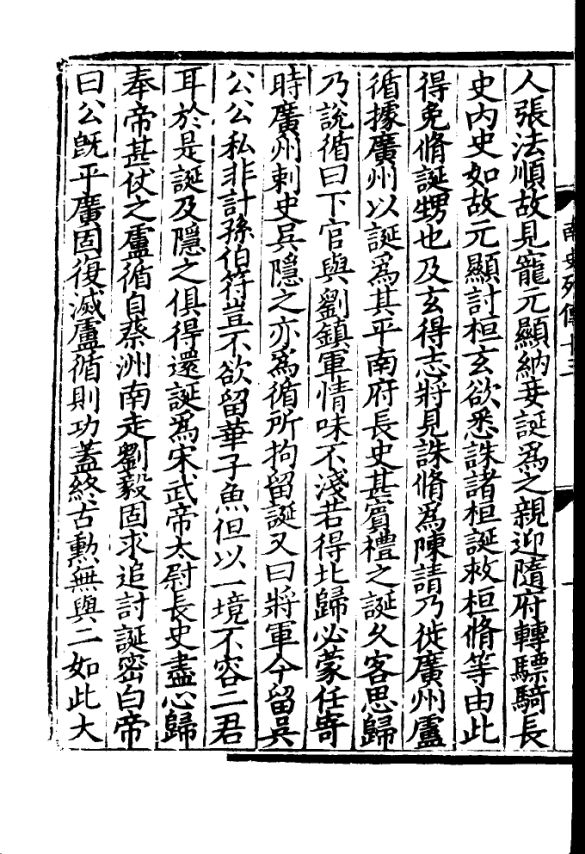 人張法順故見寵元顯納妾誕爲之親迎隨府轉驃騎長
史内史如故元顯討桓玄欲悉誅諸桓誕救桓脩等由此
得免脩誕甥也及玄得志將見誅脩爲陳請乃徙廣州盧
循據廣州以誕爲其平南府長史甚賓禮之誕久客思歸
乃說循曰下官與劉鎮軍情味不淺若得北歸必蒙任寄
時廣州刺史吳隱之亦爲循所拘留誕又曰將軍今留吳
公公私非計孫伯符豈不欲留華子魚但以一境不容二君
耳於是誕及隱之俱得還誕爲宋武帝太尉長史盡心歸
奉帝甚仗之盧循自蔡洲南走劉毅固求追討誕密白帝
曰公旣平廣固復滅盧循則功蓋終古勳無與二如此大
南史列傳十三